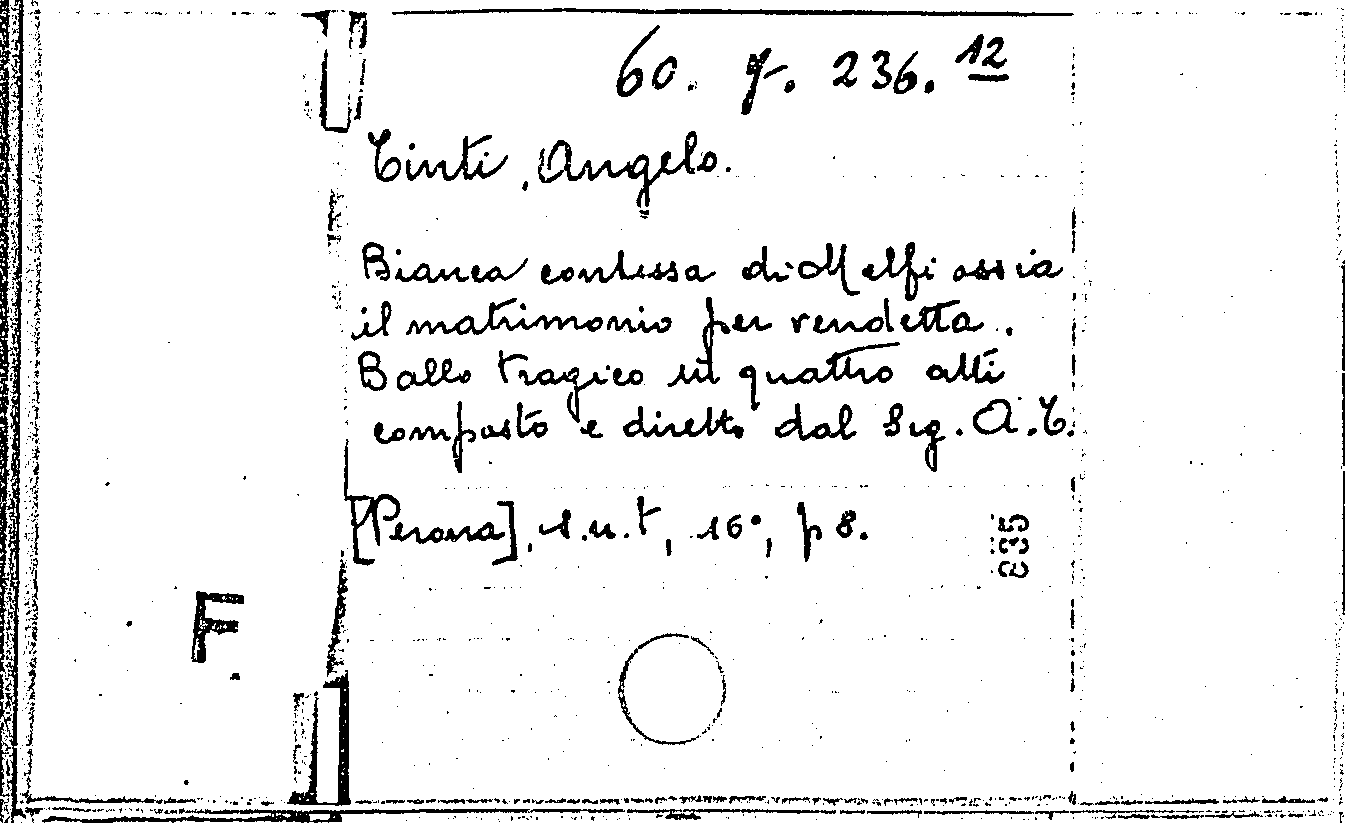 60. g. 236. 12
Tinti, Angelo.
Bianca contessa di Melfi ossia
il matrimonio per vendetta.
Ballo tragico in quattro atti
composto e diretto dal Sig. A. T.
[Verona], s.n.t, 16°, p 8.
835
F.